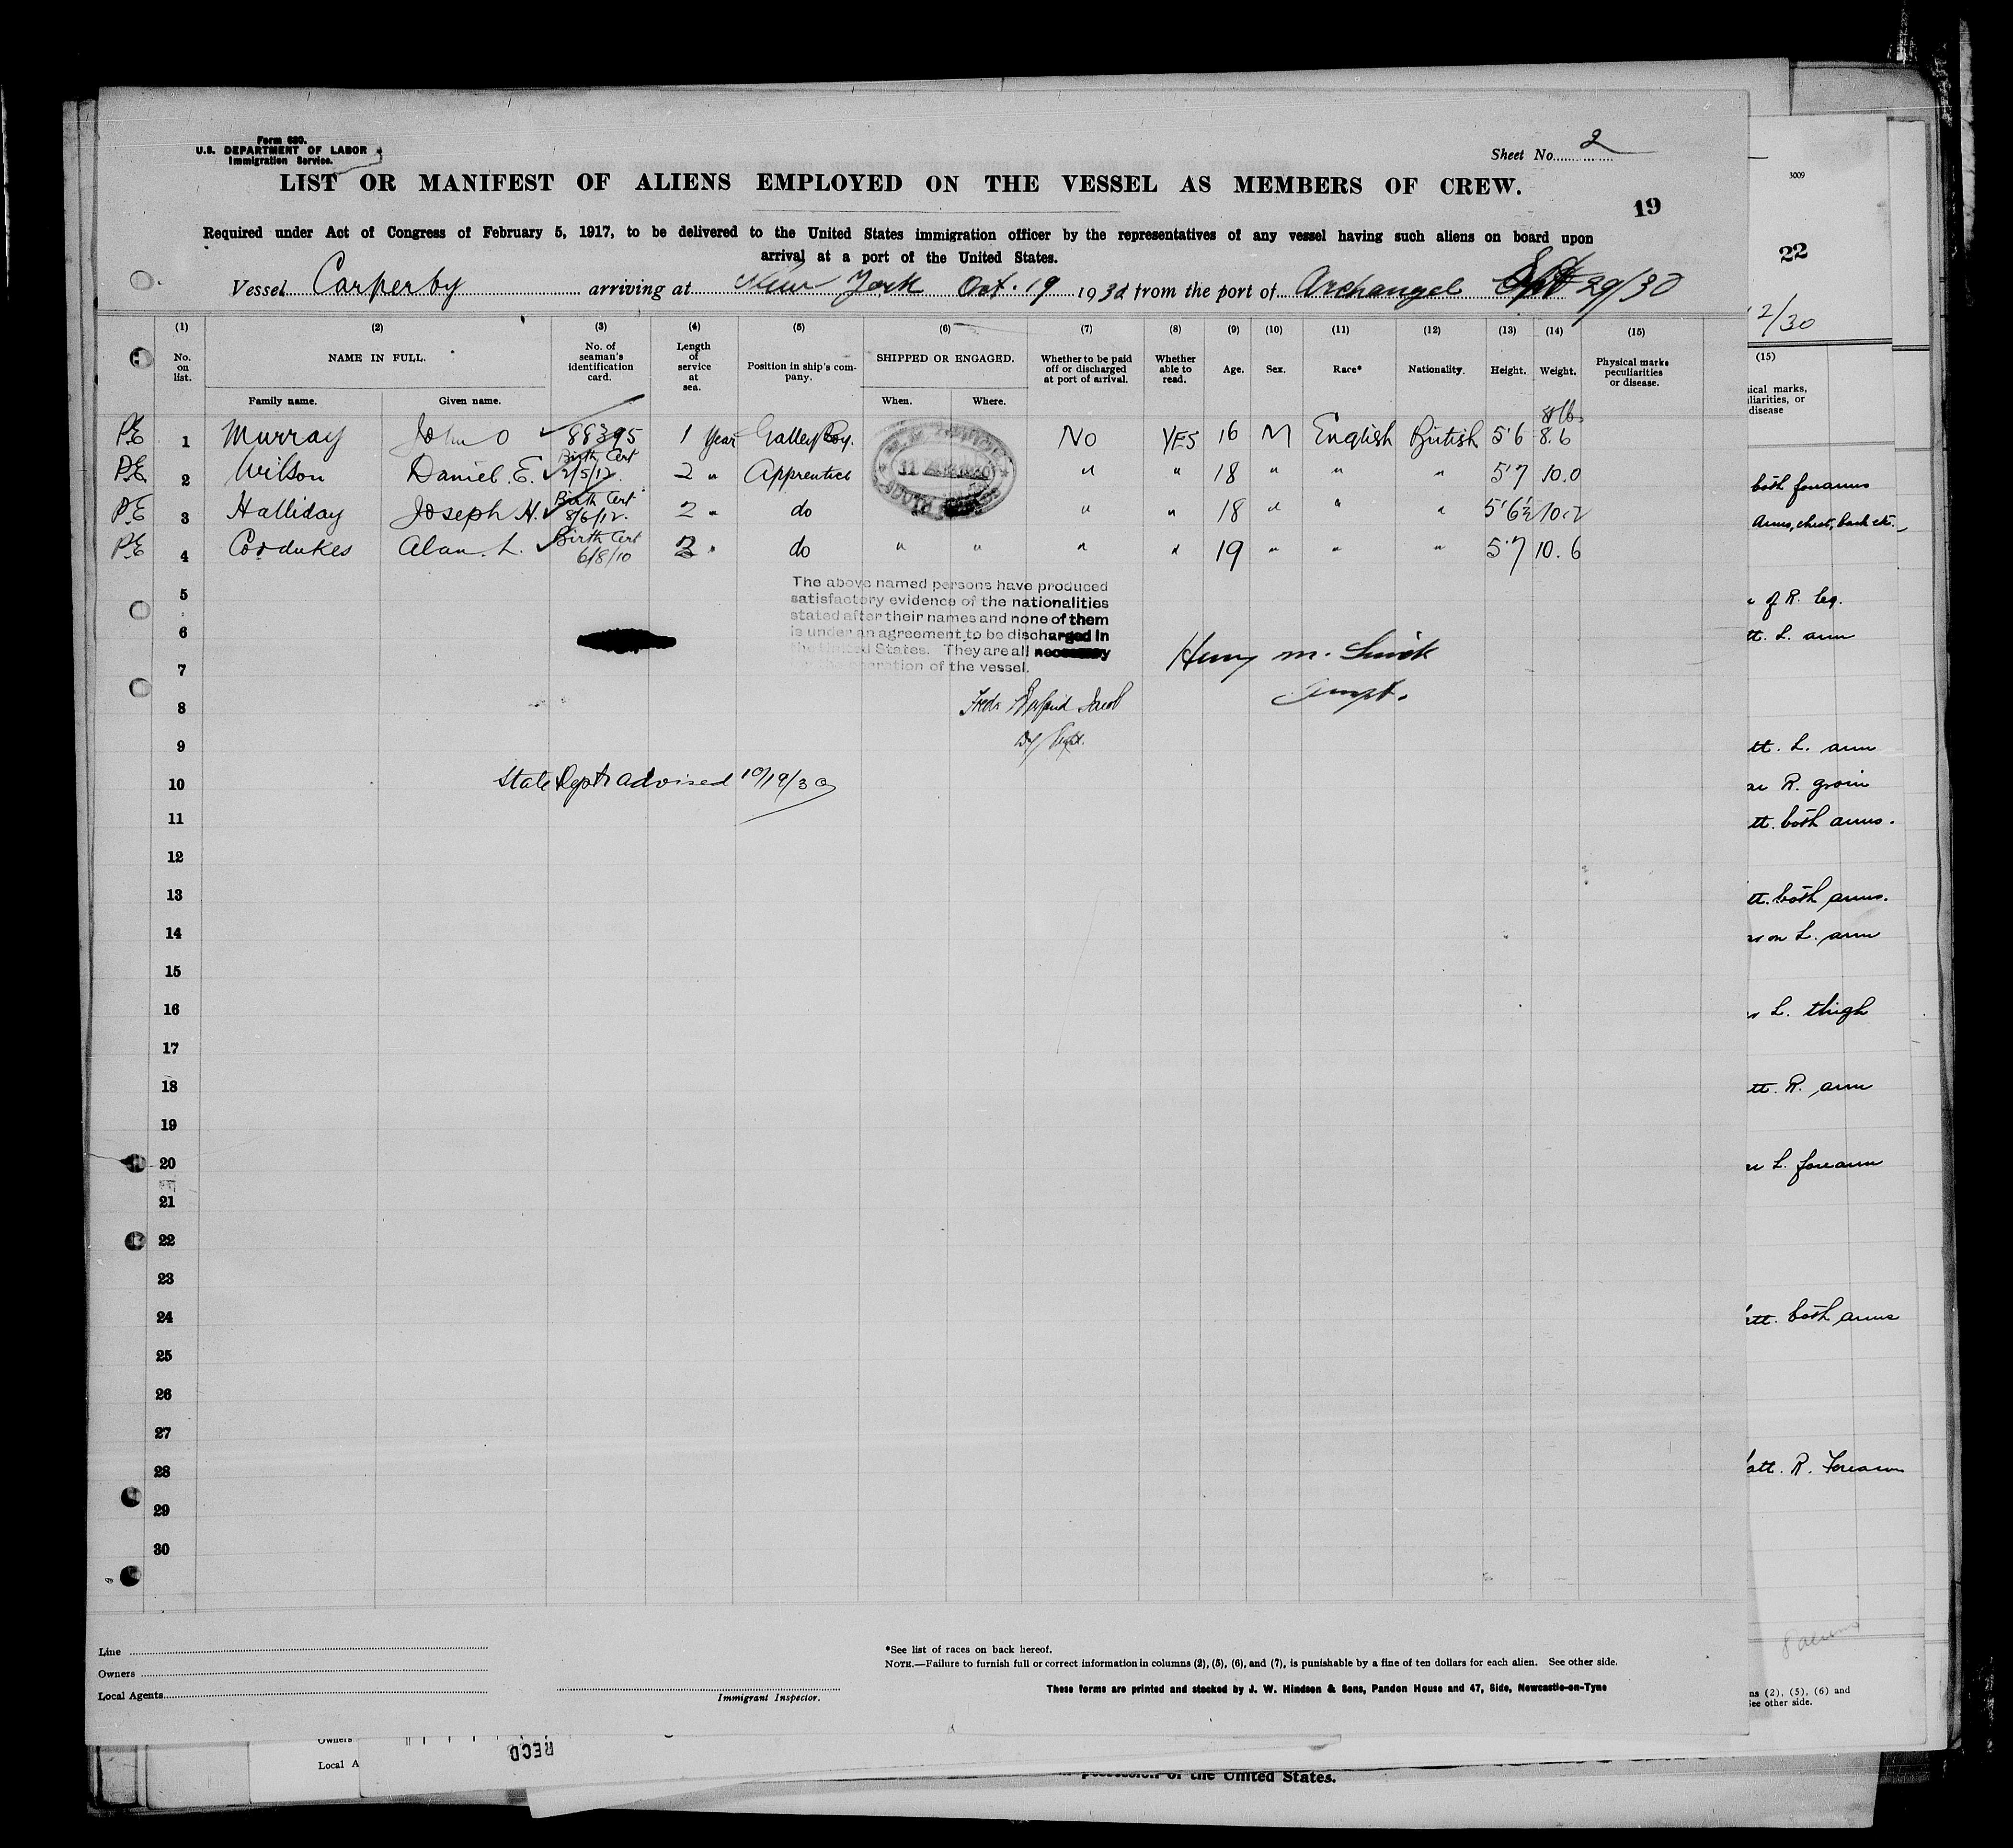 Form 680.
U.S. DEPARTMENT OF LABOR
Immigration Service.
Sheet No. 2
LIST OR MANIFEST OF ALIENS EMPLOYED ON THE VESSEL AS MEMBERS OF CREW.
19
Required under Act of Congress of February 5, 1917, to be delivered to the United States immigration officer by the representatives of any vessel having such aliens on board upon
arrival at a port of the United States.
Vessel Carperby arriving at New York Oct. 19 1930 from the port of Archangel Sept 29/30
(1) (2) (3) (4) (5) (6) (7) (8) (9) (10) (11) (12) (13) (14) (15)
No. on list. NAME IN FULL. No. of seaman's identification card. Length of service at sea. Position in ship's company. SHIPPED OR ENGAGED. Whether to be paid off or discharged at port of arrival. Whether able to read. Age. Sex. Race* Nationality. Height. Weight. Physical marks peculiarities or disease.
Family name. Given name. When. Where.
PE 1 Murray John O 88395 1 Year Galley Boy. No YES 16 M English British 5'6 8.6
PE 2 Wilson Daniel. E. Birth Cert 2/5/12. 2 " Apprentice " " 18 " " " 5'7 10.0
PE 3 Halliday Joseph H. Birth Cert 8/6/12. 2 " do " " 18 " " " 5'6½ 10.2
PE 4 Cordukes Alan. L. Birth Cert 6/8/10 2 " do " " " " 19 " " " 5'7 10.6
The above named persons have produced
satisfactory evidence of the nationalities
stated after their names and none of them
is under an agreement to be discharged in
the United States. They are all necessary
operation of the vessel.
Henry M.
5
6
7
8
9
State Dept advised 10/19/30
10
11
12
13
14
15
16
17
18
19
20
21
22
23
24
25
26
27
28
29
30
Line
Owners
Local Agents
Immigrant Inspector.
*See list of races on back hereof.
NOTE.—Failure to furnish full or correct information in columns (2), (5), (6), and (7), is punishable by a fine of ten dollars for each alien. See other side.
These forms are printed and stocked by J. W. Hindson & Sons, Pandon House and 47, Side, Newcastle-on-Tyne
3009
22
2/30
(15)
ical marks,
liarities, or
disease
both forearms
Arms, chest, back etc.
of R. leg.
tt. L. arm
tt. L. arm
R. groin
tt. both arms.
tt. both arms.
on L. arm
L. thigh
tt. R. arm
L. forearm
att. both arms
att. R. Forearm
ns (2), (5), (6) and
See other side.
Owners
Local A
RECD
possession of the United States.